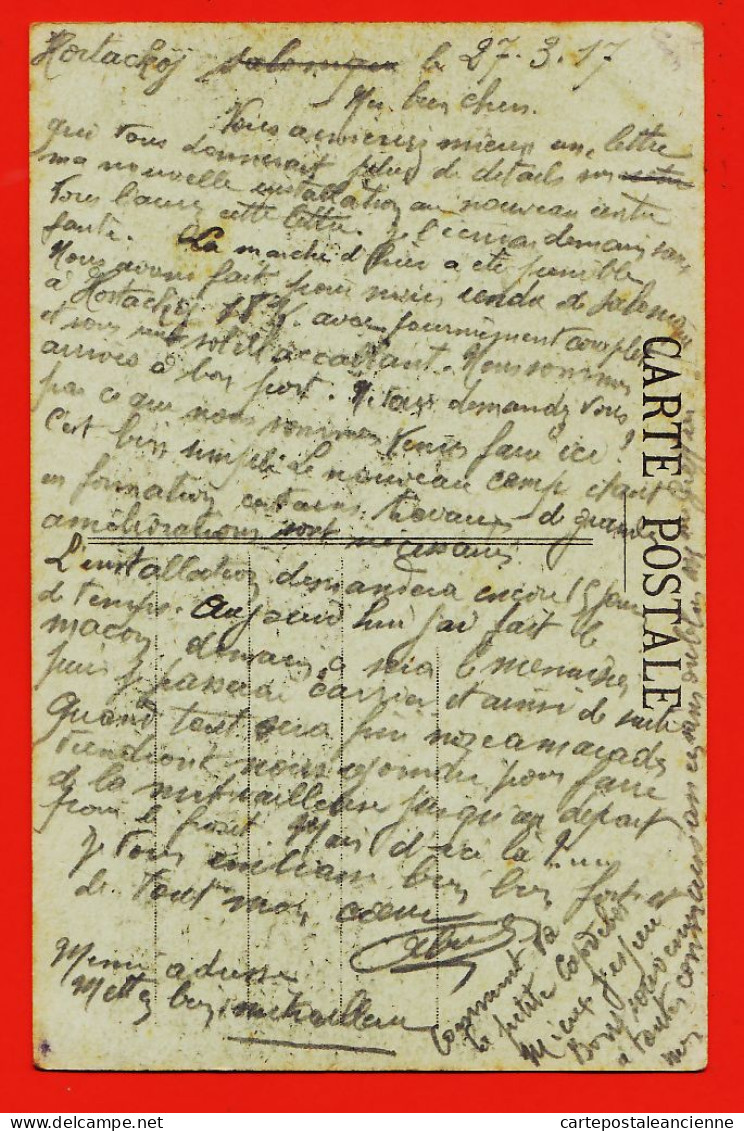 Hortackoÿ Salonique le 27.3.17
Mes biens chers.
Vous aimeriez mieux une lettre
qui vous donnerait plus de details sur
ma nouvelle installation au nouveau centre
Vous l'aurez cette lettre. je l'écrirai demain sans
faute. La marche d'hier a été penible
Nous avons fait pour nous rendre de Salonique
à Hortackoÿ 18 K. avec fourniment complet
et sous un soleil accablant. Nous sommes
arrivés à bon port. Mais demandez vous?
pas ce que nous sommes venus faire ici!
C'est bien simple le nouveau camp étant
en formation certains travaux de grandes
améliorations sont necessaires.
L'installation demandera encore 15 jours
de temps. Aujourd'hui j'ai fait le
maçon. demain ce sera le menuisier
puis je passerai carrier et ainsi de suite
Quand tout sera fini nos camarades
viendront nous rejoindre pour faire
de la mitrailleuse jusqu'au départ
pour le front. Mais d'ici là!...
Je vous embrasse bien bien fort et
de tout mon coeur
Même adresse
Mettez bien: mitrailleur
Comment va
la petite
Mieux j'espère
Bonjour
à toutes connaissances sans oublier
CARTE POSTALE
cartepostaleancienne.com